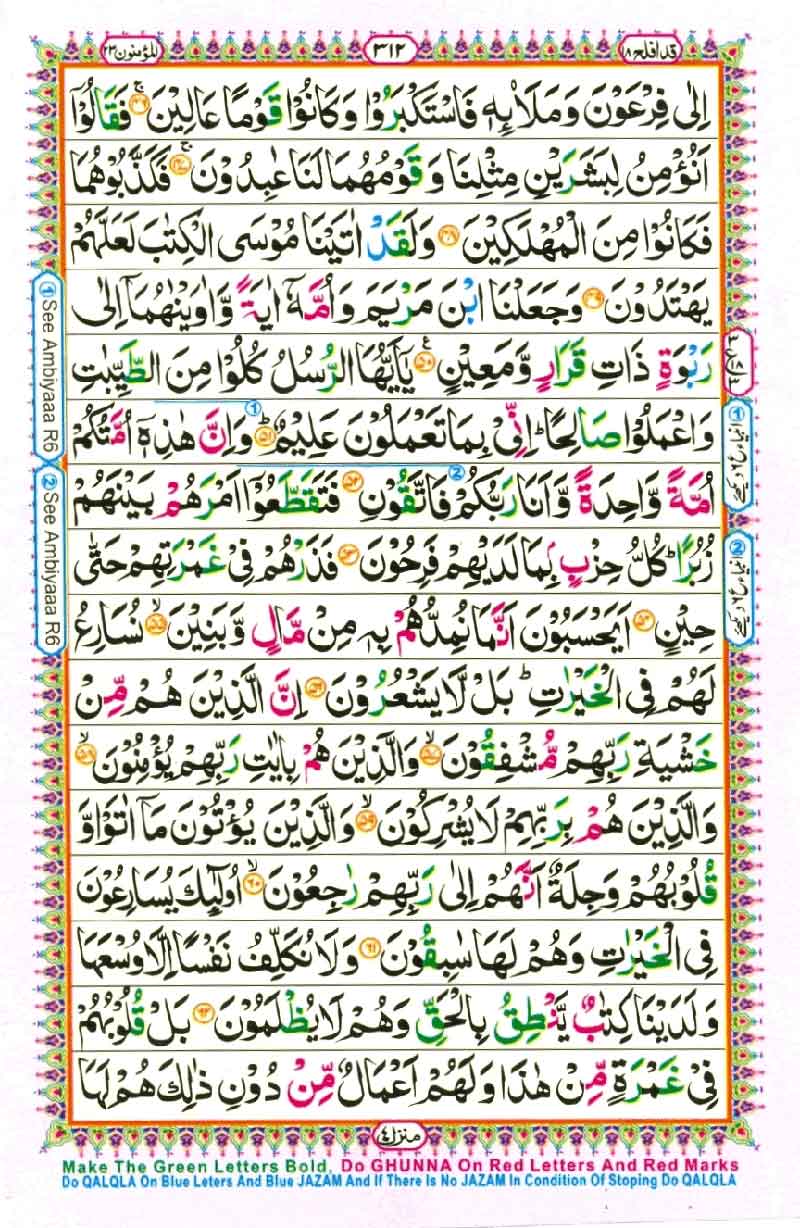 قد افلح ١٨
٣١٢
المؤمنون ٢٣
اِلٰى فِرْعَوْنَ وَمَلَا۟ئِهٖ فَاسْتَكْبَرُوْا وَكَانُوْا قَوْمًا عَالِيْنَ ۚ﴿٤٦﴾ فَقَالُوْۤا
اَنُؤْمِنُ لِبَشَرَيْنِ مِثْلِنَا وَقَوْمُهُمَا لَنَا عٰبِدُوْنَ ۚ﴿٤٧﴾ فَكَذَّبُوْهُمَا
فَكَانُوْا مِنَ الْمُهْلَكِيْنَ ﴿٤٨﴾ وَلَقَدْ اٰتَيْنَا مُوْسَى الْكِتٰبَ لَعَلَّهُمْ
يَهْتَدُوْنَ ﴿٤٩﴾ وَجَعَلْنَا ابْنَ مَرْيَمَ وَاُمَّهٗۤ اٰيَةً وَّاٰوَيْنٰهُمَاۤ اِلٰى
رَبْوَةٍ ذَاتِ قَرَارٍ وَّمَعِيْنٍ ﴿٥٠﴾ يٰۤاَيُّهَا الرُّسُلُ كُلُوْا مِنَ الطَّيِّبٰتِ
وَاعْمَلُوْا صَالِحًا ؕ اِنِّىْ بِمَا تَعْمَلُوْنَ عَلِيْمٌ ؕ﴿٥١﴾ وَاِنَّ هٰذِهٖۤ اُمَّتُكُمْ
اُمَّةً وَّاحِدَةً وَّاَنَا رَبُّكُمْ فَاتَّقُوْنِ ﴿٥٢﴾ فَتَقَطَّعُوْۤا اَمْرَهُمْ بَيْنَهُمْ
زُبُرًا ؕ كُلُّ حِزْبٍۭ بِمَا لَدَيْهِمْ فَرِحُوْنَ ﴿٥٣﴾ فَذَرْهُمْ فِىْ غَمْرَتِهِمْ حَتّٰى
حِيْنٍ ﴿٥٤﴾ اَيَحْسَبُوْنَ اَنَّمَا نُمِدُّهُمْ بِهٖ مِنْ مَّالٍ وَّبَنِيْنَ ۙ﴿٥٥﴾ نُسَارِعُ
لَهُمْ فِى الْخَيْرٰتِ ؕ بَلْ لَّا يَشْعُرُوْنَ ﴿٥٦﴾ اِنَّ الَّذِيْنَ هُمْ مِّنْ
خَشْيَةِ رَبِّهِمْ مُّشْفِقُوْنَ ۙ﴿٥٧﴾ وَالَّذِيْنَ هُمْ بِاٰيٰتِ رَبِّهِمْ يُؤْمِنُوْنَ ۙ﴿٥٨﴾
وَالَّذِيْنَ هُمْ بِرَبِّهِمْ لَا يُشْرِكُوْنَ ۙ﴿٥٩﴾ وَالَّذِيْنَ يُؤْتُوْنَ مَاۤ اٰتَوْا وَّ
قُلُوْبُهُمْ وَجِلَةٌ اَنَّهُمْ اِلٰى رَبِّهِمْ رٰجِعُوْنَ ۙ﴿٦٠﴾ اُولٰٓئِكَ يُسَارِعُوْنَ
فِى الْخَيْرٰتِ وَهُمْ لَهَا سٰبِقُوْنَ ﴿٦١﴾ وَلَا نُكَلِّفُ نَفْسًا اِلَّا وُسْعَهَا
وَلَدَيْنَا كِتٰبٌ يَّنْطِقُ بِالْحَقِّ وَهُمْ لَا يُظْلَمُوْنَ ﴿٦٢﴾ بَلْ قُلُوْبُهُمْ
فِىْ غَمْرَةٍ مِّنْ هٰذَا وَلَهُمْ اَعْمَالٌ مِّنْ دُوْنِ ذٰلِكَ هُمْ لَهَا
منزل ٤
① See Ambiyaaa R6
② See Ambiyaaa R6
Make The Green Letters Bold, Do GHUNNA On Red Letters And Red Marks
Do QALQLA On Blue Leters And Blue JAZAM And If There Is No JAZAM In Condition Of Stoping Do QALQLA